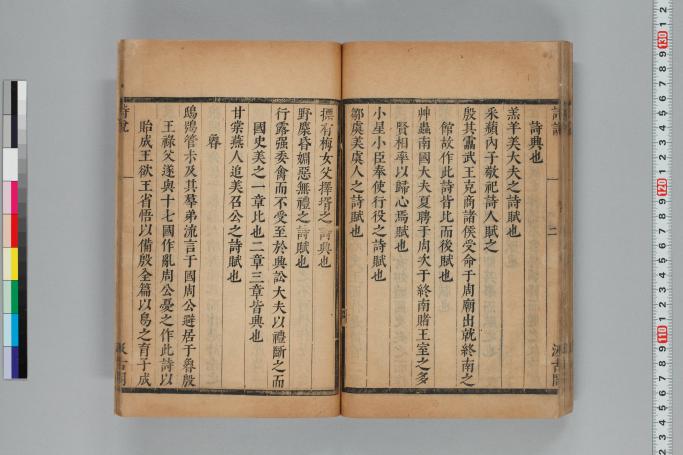 詩說
二
汲古閣
詩興也
羔羊美大夫之詩賦也
采蘋內子敬祀詩人賦之
殷其靁武王克商諸侯受命于周廟出就終南之
館故作此詩皆比而後賦也
艸蟲南國大夫夏聘于周次于終南睹王室之多
賢相率以歸心焉賦也
小星小臣奉使行役之詩賦也
騶虞美虞人之詩賦也
摽有梅女父擇壻之詩興也
野麇昏姻惡無禮之詩賦也
行露强委禽而不受至於興訟大夫以禮斷之而
國史美之一章比也二章三章皆興也
甘棠燕人追美召公之詩賦也
魯
鴟鴞管未及其羣弟流言于國周公避居于魯殷
王祿父遂與十七國作亂周公憂之作此詩以
貽成王欲王省悟以備殷全篇以鳥之育子成
詩說
汲古閣